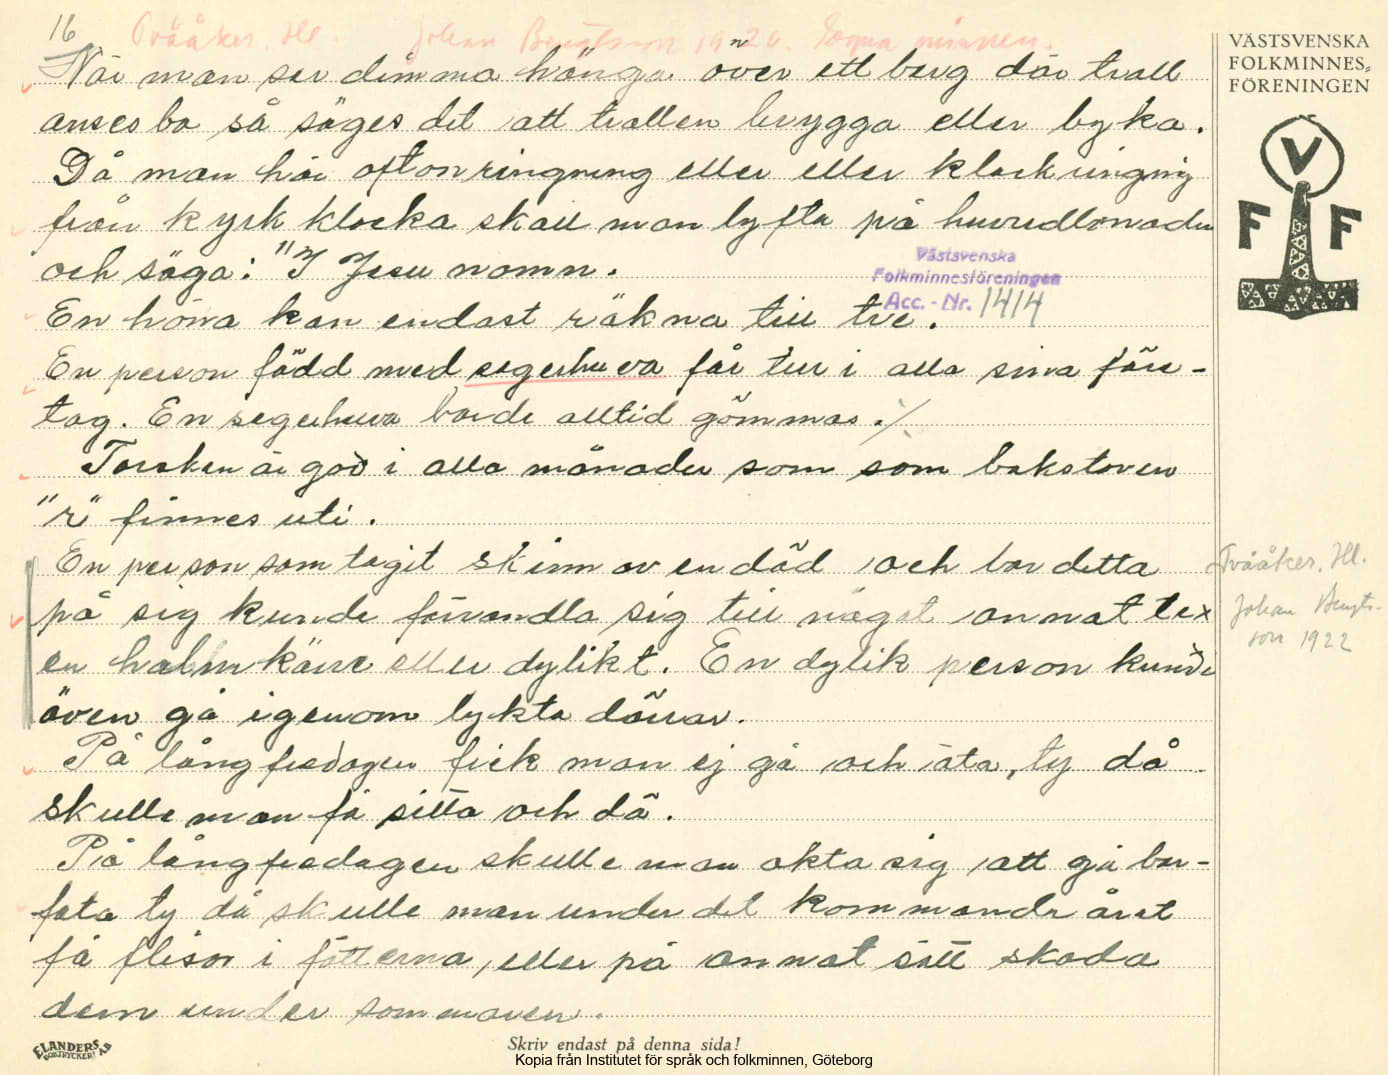 16
Tvååker, Hl. Johan Bengtsson 1920 Egna minnen.
När man ser dimma hänga över ett berg där troll
anses bo så säges det att trollen brygga eller byka.
Då man hör aftonringning eller eller klockringnig
från kyrkklocka skall man lyfta på huvudbonaden
och säga: "I Jesu namn.
En höna kan endast räkna till tre.
En person född med segerhuva får tur i alla sina före-
tag. En segerhuva borde alltid gömmas ./.
Torsken är god i alla månader som som bokstaven
"r" finnes uti.
En person som tagit skinn av en död och bar detta
på sig kunde förvandla sig till något annat tex
en halmkärve eller dylikt. En dylik person kunde
även gå igenom lyckta dörrar.
På långfredagen fick man ej gå och äta, ty då
skulle man få sitta och dö.
På långfredagen skulle man akta sig att gå bar-
fota ty då skulle man under det kommande året
få flisor i fötterna, eller på annat sätt skada
dem under sommaren.
Västsvenska
Folkminnesföreningen
Acc. - Nr. 1414
VÄSTSVENSKA
FOLKMINNES-
FÖRENINGEN
V
F F
Tvååker, Hl.
Johan Bengts-
son 1922
ELANDERS
BOKTRYCKERI AB
Skriv endast på denna sida!
Kopia från Institutet för språk och folkminnen, Göteborg